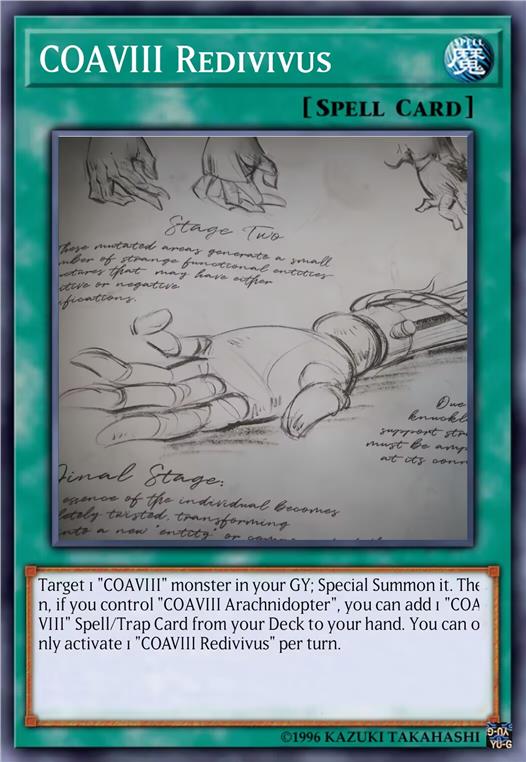 COAVIII Redivivus
魔
[Spell Card]
Stage Two
these mutated areas generate a small
mber of strange functional entities
ctures that may have either
itive or negative
fications.
Due
knuckl
support str
must be amp
at its conn
Final Stage:
essence of the individual becomes
letely twisted, transforming
into a new 'entity' or
Target 1 "COAVIII" monster in your GY; Special Summon it. The
n, if you control "COAVIII Arachnidopter", you can add 1 "COA
VIII" Spell/Trap Card from your Deck to your hand. You can o
nly activate 1 "COAVIII Redivivus" per turn.
©1996 KAZUKI TAKAHASHI
YU-G
YU-G